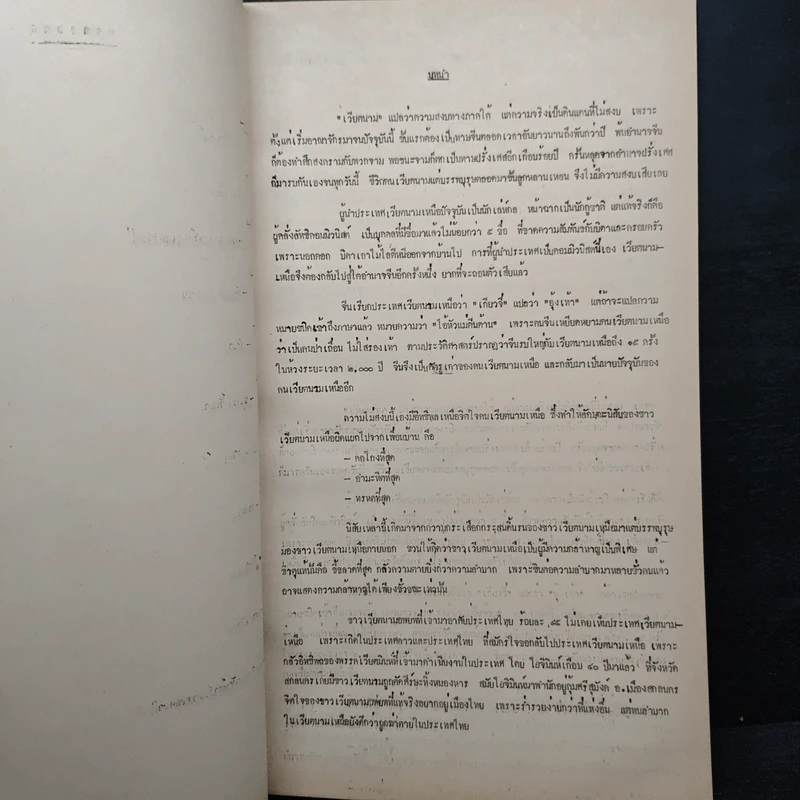 บทนำ
"เวียตนาม" แปลว่าความสงบทางภาคใต้ แต่ความจริงเป็นดินแดนที่ไม่สงบ เพราะ
ตั้งแต่เริ่มอาณาจักรมาจนปัจจุบันนี้ ขั้นแรกต้องเป็นทาสจีนตลอดเวลาอันยาวนานถึงพันกว่าปี พ้นอำนาจจีน
ก็ต้องทำศึกสงครามกับพวกจาม พอชนะจามก็ตกเป็นทาสฝรั่งเศสอีกเกือบร้อยปี ครั้นหลุดจากอำนาจฝรั่งเศส
ก็มารบกันเองจนทุกวันนี้ ชีวิตคนเวียตนามแต่บรรพบุรุษตลอดมาชั้นลูกหลานเหลน จึงไม่มีความสงบเสียเลย
ผู้นำประเทศเวียตนามเหนือปัจจุบันเป็นนักเล่ห์กล หน้าฉากเป็นนักกู้ชาติ แต่แท้จริงก็คือ
ผู้คลั่งลัทธิคอมมิวนิสต์ เป็นบุคคลที่มีชื่อมาแล้วไม่น้อยกว่า ๕ ชื่อ ที่ขาดความสัมพันธ์กับบิดาและครอบครัว
เพราะนอกคอก บิดาเอาไม้ไล่ตีหนีออกจากบ้านไป การที่ผู้นำประเทศเป็นคอมมิวนิสต์นี้เอง เวียตนาม-
เหนือจึงต้องกลับไปสู่ใต้อำนาจจีนอีกครั้งหนึ่ง ยากที่จะถอนตัวเสียแล้ว
จีนเรียกประเทศเวียตนามเหนือว่า "เกียวจี่" แปลว่า "อุ้งเท้า" แต่ถ้าจะแปลความ
หมายชนิดเข้าถึงภาษาแล้ว หมายความว่า "ไอ้หัวแม่ตีนด้าน" เพราะคนจีนเหยียดหยามคนเวียตนามเหนือ
ว่าเป็นคนป่าเถื่อน ไม่ใส่รองเท้า ตามประวัติศาสตร์ปรากฏว่าจีนรบใหญ่กับเวียตนามเหนือถึง ๑๕ ครั้ง
ในห้วงระยะเวลา ๒,๐๐๐ ปี จีนจึงเป็นศัตรูเก่าของคนเวียตนามเหนือ และกลับมาเป็นนายปัจจุบันของ
คนเวียตนามเหนืออีก
ความไม่สงบนี้เองมีอิทธิพลเหนือจิตใจคนเวียตนามเหนือ ซึ่งทำให้ลักษณะนิสัยของชาว
เวียตนามเหนือผิดแผกไปจากเพื่อนบ้าน คือ
- คดโกงที่สุด
- อำมะหิตที่สุด
- ทรหดที่สุด
นิสัยเหล่านี้เกิดมาจากความกระเสือกกระสนดิ้นรนของชาวเวียตนามเหนือมาแต่บรรพบุรุษ
มองชาวเวียตนามเหนือภายนอก ชวนให้คิดว่าชาวเวียตนามเหนือเป็นผู้มีความกล้าหาญเป็นพิเศษ แต่
ธาตุแท้นั้นคือ ขี้ขลาดที่สุด กลัวความตายยิ่งกว่าความลำบาก เพราะชินต่อความลำบากมาหลายชั่วคนแล้ว
อาจแสดงความกล้าหาญได้เพียงชั่วขณะเท่านั้น
ชาวเวียตนามอพยพที่เข้ามาอาศัยประเทศไทย ร้อยละ ๙๕ ไม่เคยเห็นประเทศเวียตนาม-
เหนือ เพราะเกิดในประเทศลาวและประเทศไทย ที่สมัครใจขอกลับไปประเทศเวียตนามเหนือ เพราะ
กลัวอิทธิพลของพรรคเวียตมินห์ที่เข้ามาดำเนินงานในประเทศ โดย โฮจิมินห์เกือบ ๔๐ ปีมาแล้ว ที่จังหวัด
สกลนครเคยมีชาวเวียตนามถูกตัดศีรษะทิ้งหนองหาร สมัยโฮจิมินห์มาพำนักอยู่คุ้มศรีสุมังค์ อ.เมืองสกลนคร
จิตใจของชาวเวียตนามอพยพที่แท้จริงอยากอยู่เมืองไทย เพราะร่ำรวยง่ายกว่าที่แห่งอื่น แต่ทนลำบาก
ในเวียตนามเหนือยังดีกว่าถูกฆ่าตายในประเทศไทย